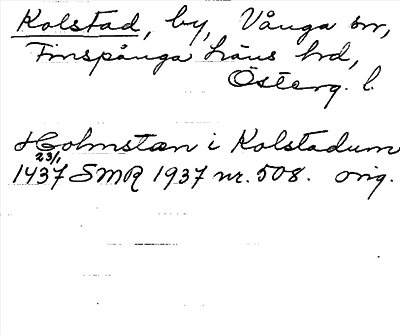 Kolstad, by, Vånga sn,
Finspånga läns hd,
Österg. l.
Holmstæn i Kolstadum
23/1
1437 SMR 1937 nr. 508. orig.